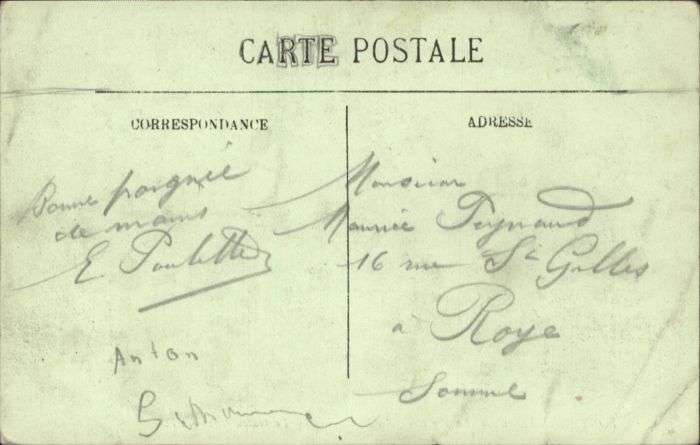 CARTE POSTALE
CORRESPONDANCE
Bonne poignée
de mains
E Paulette
Anton
ADRESSE
Monsieur
Maurice Peynaud
16 rue St Gilles
à Roye
Somme